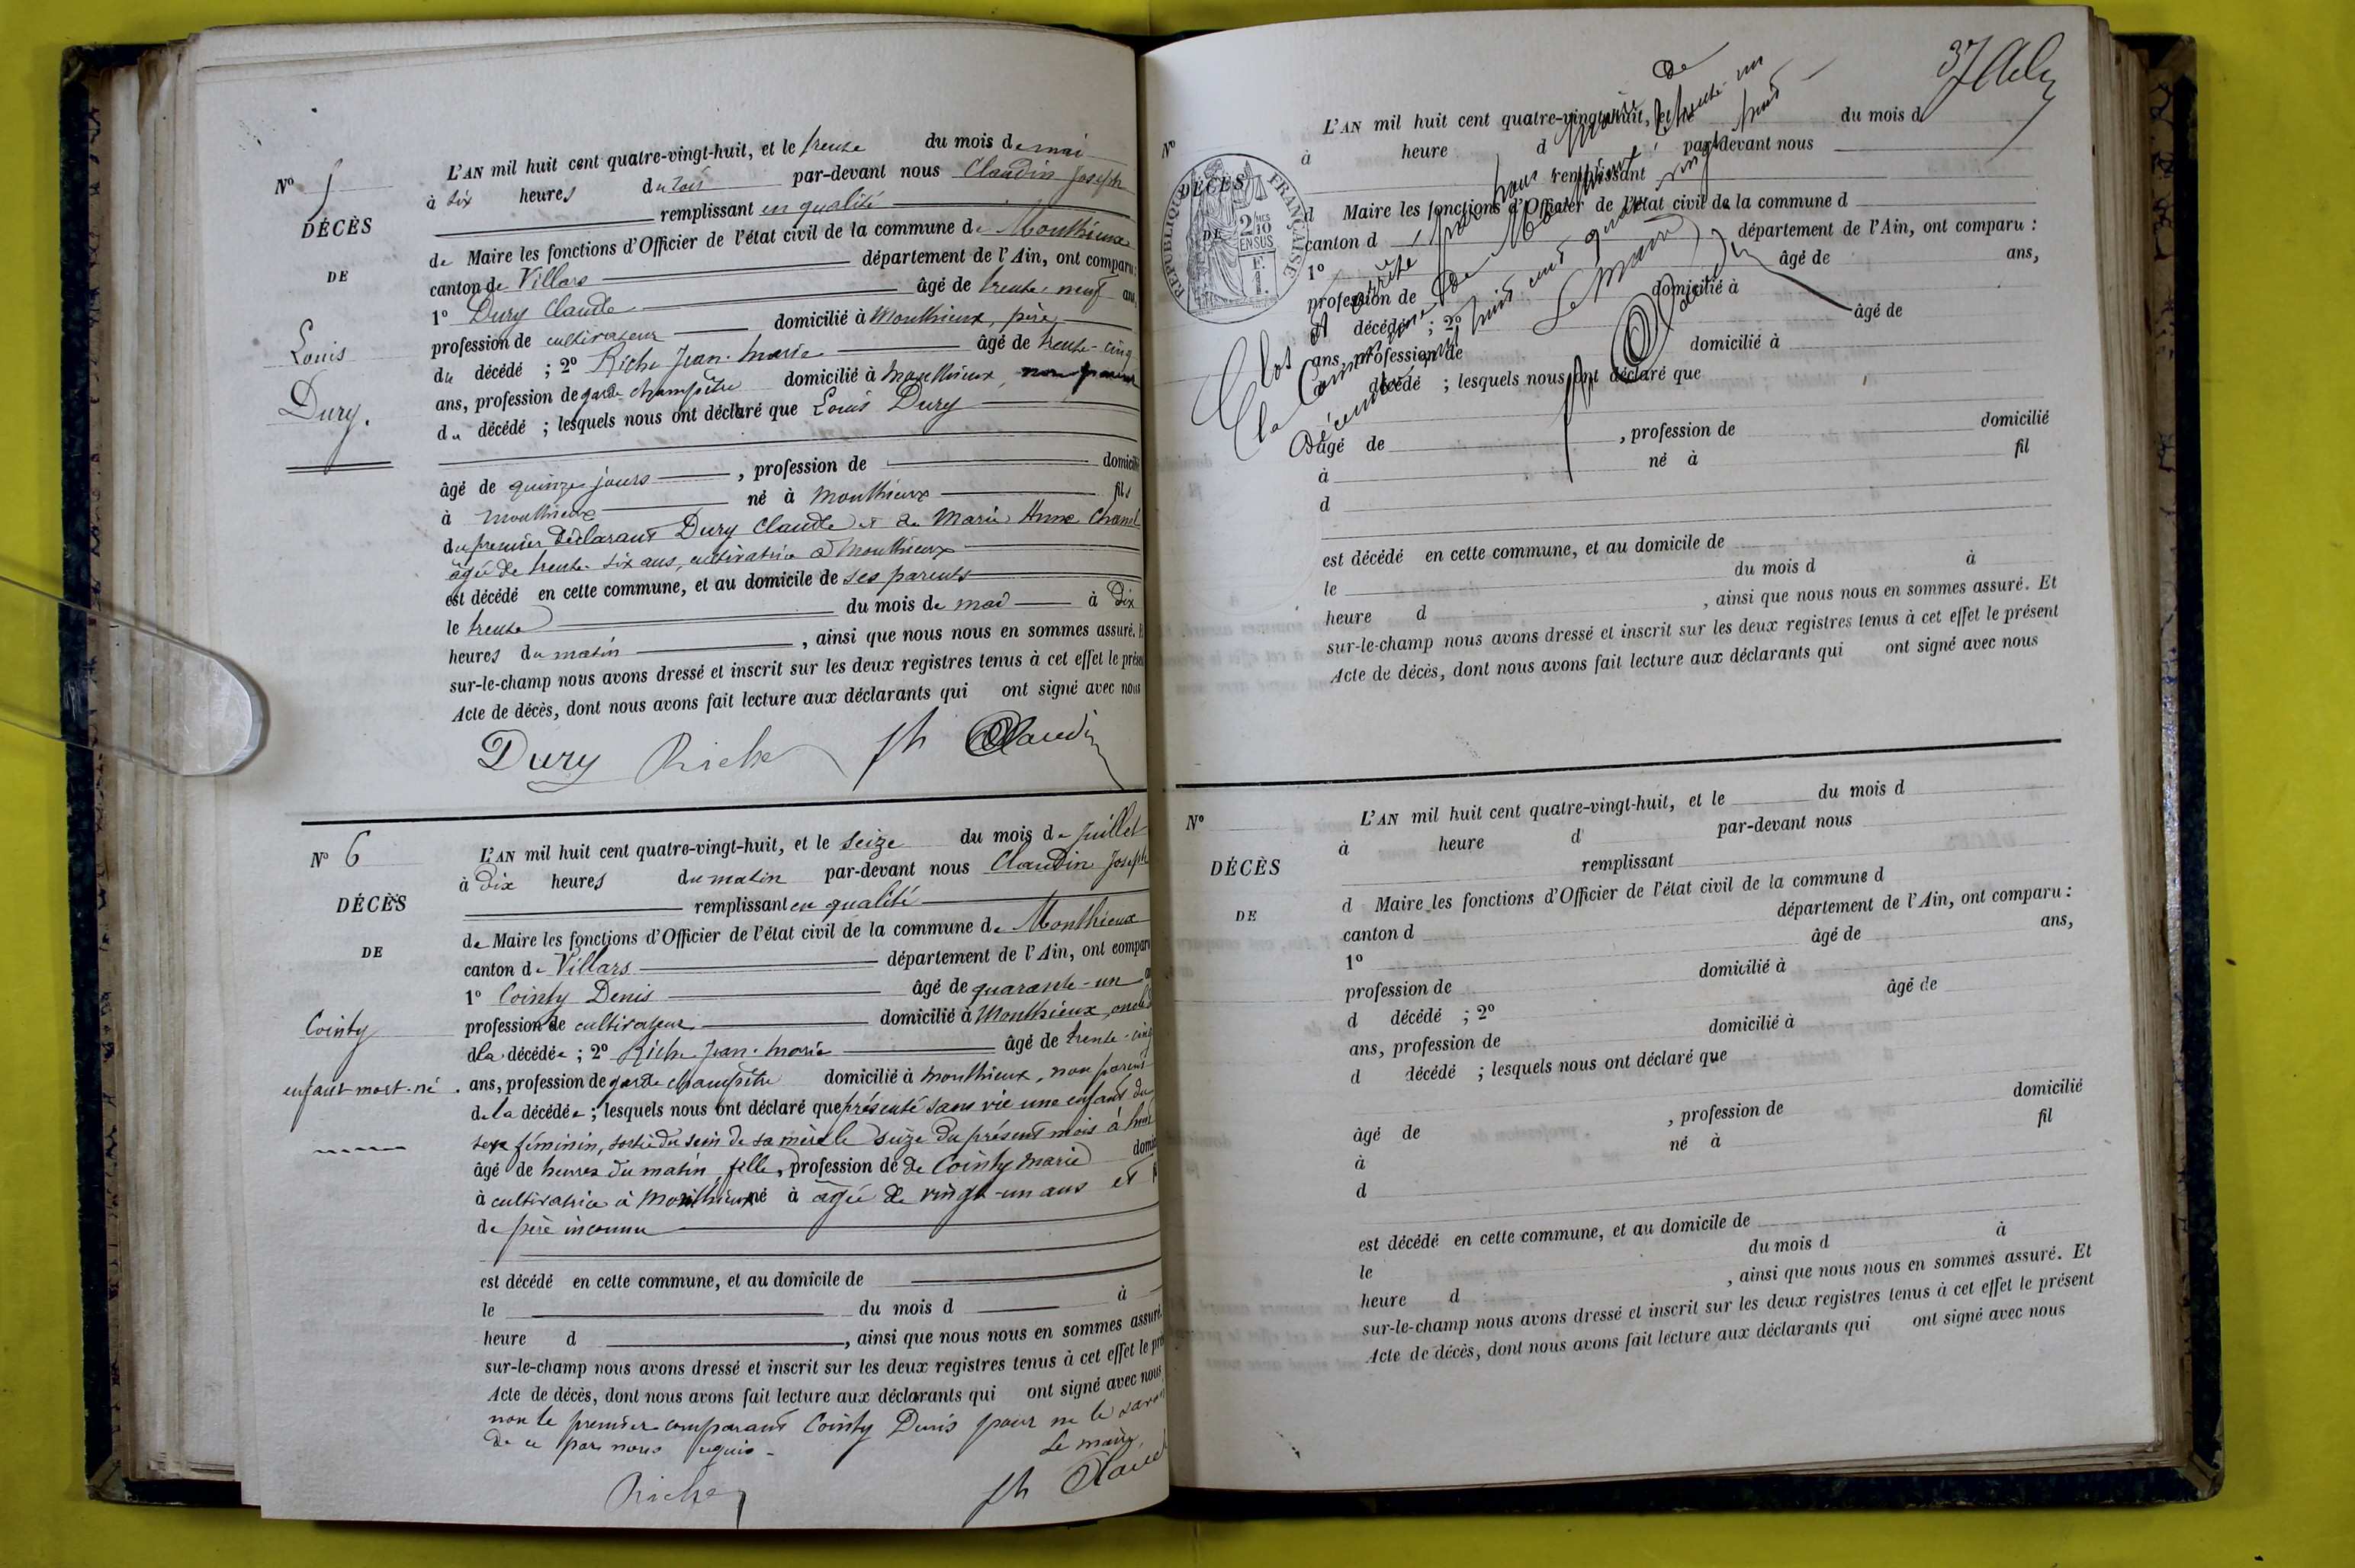 N° 5
DÉCÈS
DE
Louis
Dury.
L'AN mil huit cent quatre-vingt-huit, et le trente du mois de mai
à six heures du soir par-devant nous Claudin Joseph
remplissant en qualité
de Maire les fonctions d'Officier de l'état civil de la commune de Monthieux
canton de Villars département de l'Ain, ont comparu :
1° Dury Claude âgé de trente-neuf ans,
profession de cultivateur domicilié à Monthieux, père
du décédé ; 2° Riche Jean-Marie âgé de trente-cinq
ans, profession de garde champêtre domicilié à Monthieux, non parent
du décédé ; lesquels nous ont déclaré que Louis Dury
âgé de quinze jours , profession de domicilié
à Monthieux né à Monthieux fils
du premier déclarant Dury Claude et de Marie Anne Chanel
âgée de trente-six ans, cultivatrice à Monthieux
est décédé en cette commune, et au domicile de ses parents
le trente du mois de mai à dix
heures du matin , ainsi que nous nous en sommes assuré. Et
sur-le-champ nous avons dressé et inscrit sur les deux registres tenus à cet effet le présent
Acte de décès, dont nous avons fait lecture aux déclarants qui ont signé avec nous
Dury Riche Jh Claudin
N° 6
DÉCÈS
DE
Cointy
enfant mort-né.
L'AN mil huit cent quatre-vingt-huit, et le seize du mois de Juillet
à dix heures du matin par-devant nous Claudin Joseph
remplissant en qualité
de Maire les fonctions d'Officier de l'état civil de la commune de Monthieux
canton de Villars département de l'Ain, ont comparu
1° Cointy Denis âgé de quarante-un
profession de cultivateur domicilié à Monthieux, oncle
de la décédée ; 2° Riche Jean-Marie âgé de trente-cinq
ans, profession de garde champêtre domicilié à Monthieux, non parent
de la décédée ; lesquels nous ont déclaré que présenté sans vie une enfant du
sexe féminin, sortie du sein de sa mère le seize du présent mois à huit
âgé de heures du matin, fille, profession de de Cointy Marie
à cultivatrice à Monthieux né à âgée de vingt-un ans et
de père inconnu
est décédé en cette commune, et au domicile de
le du mois d à
heure d , ainsi que nous nous en sommes assuré.
sur-le-champ nous avons dressé et inscrit sur les deux registres tenus à cet effet le
Acte de décès, dont nous avons fait lecture aux déclarants qui ont signé avec nous
non le premier comparant Cointy Denis pour ne le savoir
de ce par nous requis.
Le maire,
Riche Jh
37
RÉPUBLIQUE FRANÇAISE
2/10 EN SUS
N°
DÉCÈS
DE
L'AN mil huit cent quatre-vingt-huit, et le du mois d
à heure d par-devant nous
remplissant
d Maire les fonctions d'Officier de l'état civil de la commune d
canton d département de l'Ain, ont comparu :
1° âgé de ans,
profession de domicilié à
d décédé ; 2° âgé de
ans, profession de domicilié à
d décédé ; lesquels nous ont déclaré que
Clos et arrêté par nous Maire de
la Commune de Monthieux, le trente-un
Décembre mil huit cent quatre vingt huit
Le Maire
Jh Claudin
âgé de , profession de domicilié
à né à fil
d
est décédé en cette commune, et au domicile de
le du mois d à
heure d , ainsi que nous nous en sommes assuré. Et
sur-le-champ nous avons dressé et inscrit sur les deux registres tenus à cet effet le présent
Acte de décès, dont nous avons fait lecture aux déclarants qui ont signé avec nous
N°
DÉCÈS
DE
L'AN mil huit cent quatre-vingt-huit, et le du mois d
à heure d par-devant nous
remplissant
d Maire les fonctions d'Officier de l'état civil de la commune d
canton d département de l'Ain, ont comparu :
1° âgé de ans,
profession de domicilié à
d décédé ; 2° âgé de
ans, profession de domicilié à
d décédé ; lesquels nous ont déclaré que
âgé de , profession de domicilié
à né à fil
d
est décédé en cette commune, et au domicile de
le du mois d à
heure d , ainsi que nous nous en sommes assuré. Et
sur-le-champ nous avons dressé et inscrit sur les deux registres tenus à cet effet le présent
Acte de décès, dont nous avons fait lecture aux déclarants qui ont signé avec nous